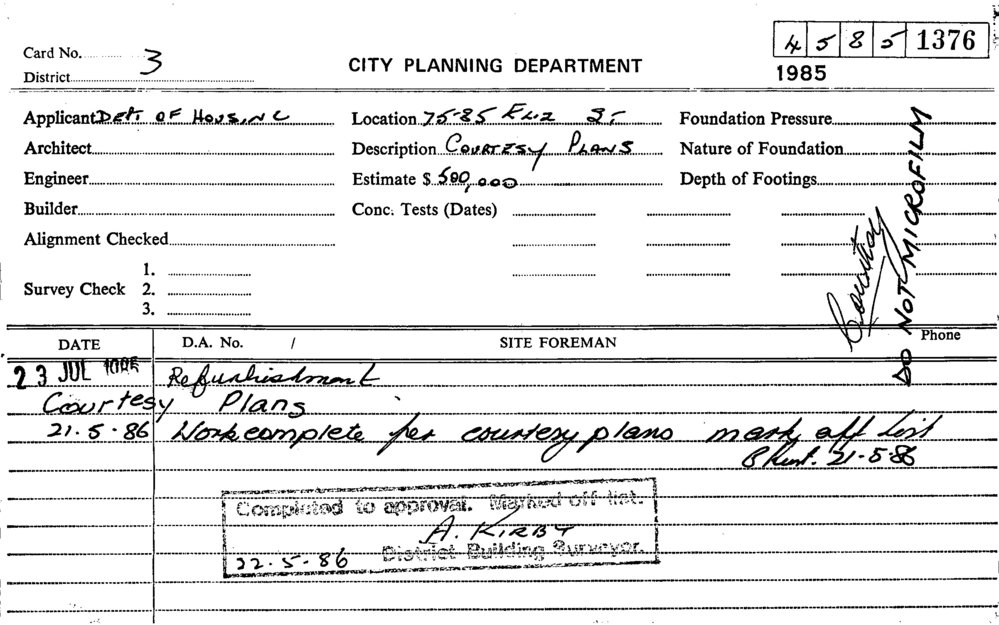 Card No. 3
District
CITY PLANNING DEPARTMENT
4 5 8 5 1376
1985
Applicant DEPT OF HOUSING
Location 75-85 ELIZ ST
Foundation Pressure
Architect
Description COURTESY PLANS
Nature of Foundation
Engineer
Estimate $ 500,000
Depth of Footings
Builder
Conc. Tests (Dates)
Alignment Checked
Survey Check
1.
2.
3.
Courtesy
DO NOT MICROFILM
DATE D.A. No. / SITE FOREMAN Phone
23 JUL 1985 Refurbishment
Courtesy Plans
21.5.86 Work complete per courtesy plans mark off list
21-5-86
Completed to approval. Marked off list.
A. KIRBY
22.5.86 District Building Surveyor.